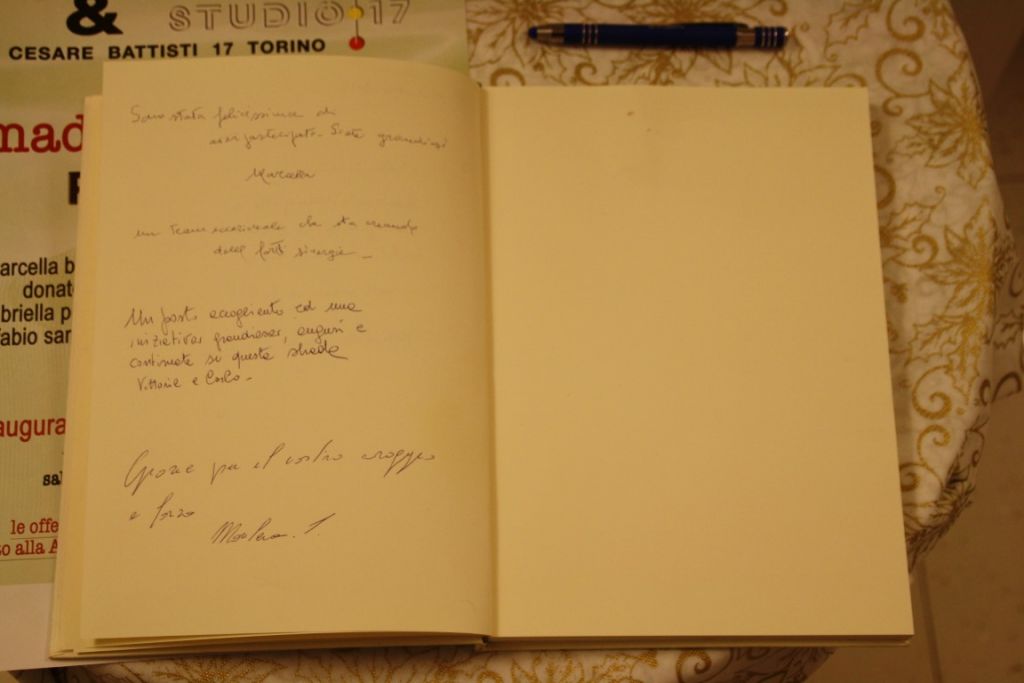 & STUDIO 17
CESARE BATTISTI 17 TORINO
mad
arcella b
donat
briella p
abio sar
augura
sal
le offe
o alla A
Sono stata felicissima di
aver partecipato. Siete grandiosi
Marcella
un Team eccezionale che sta creando
delle forti sinergie_
Un posto accogliente ed una
iniziativa grandiosa, auguri e
continuate su questa strada
Vittoria e Carlo_
Grazie per il vostro coraggio
e forza